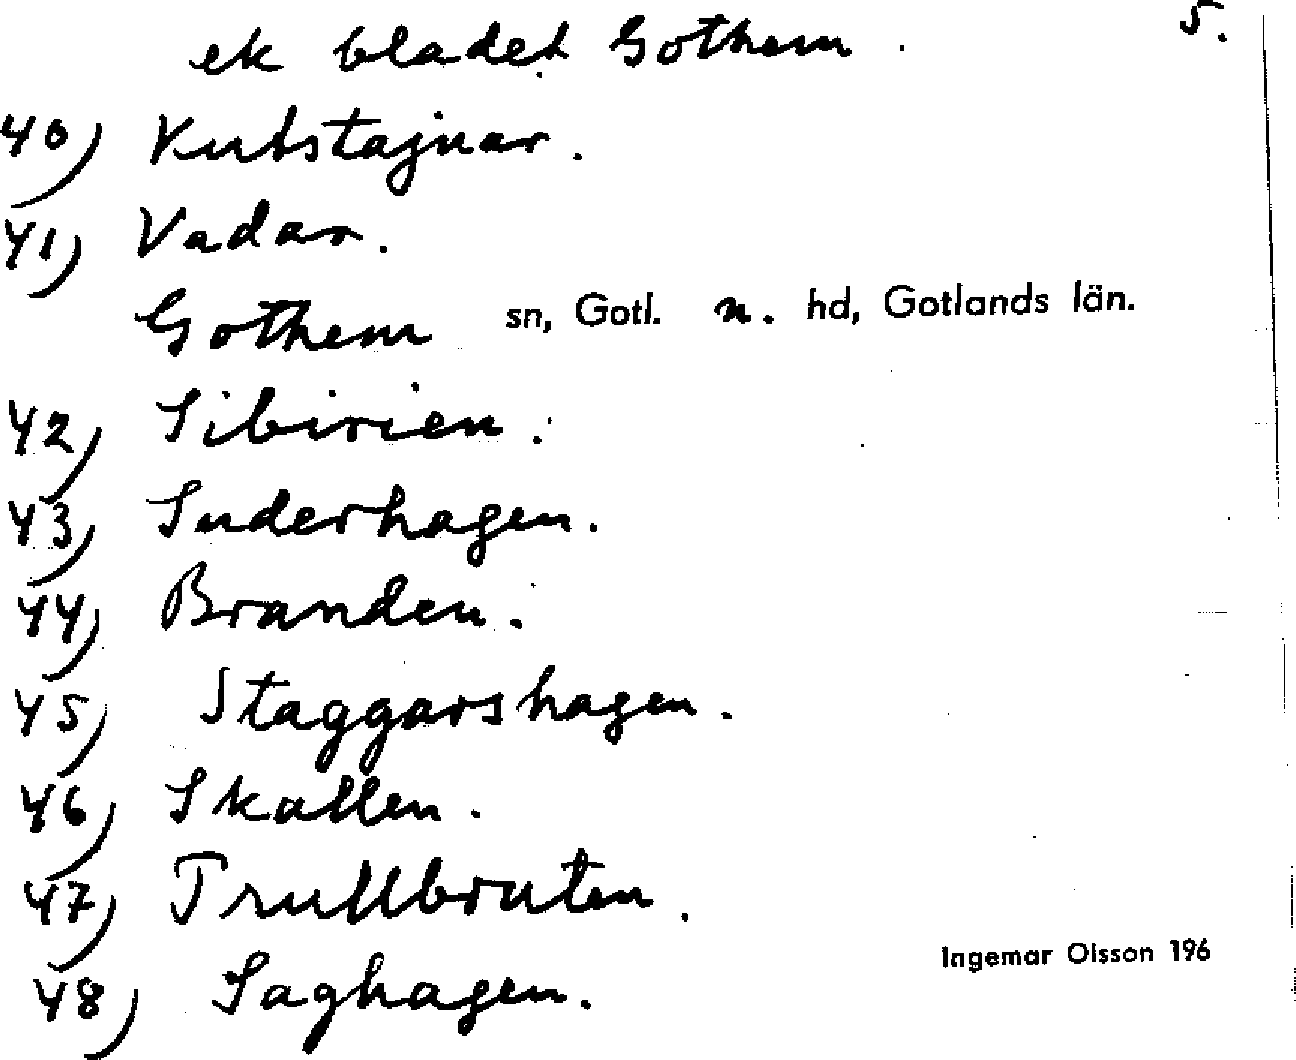 ek bladet Gothem. 5.
40) Kutstajnar.
41) Vadar.
Gothem sn, Gotl. n. hd, Gotlands län.
42) Sibirien.
43) Suderhagen.
44) Branden.
45) Staggarshagen.
46) Skallen.
47) Trullbruten.
48) Saghagen.
Ingemar Olsson 196